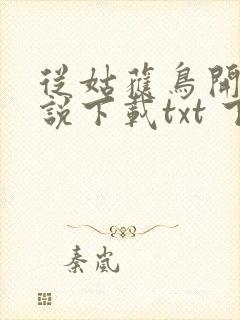 從姑獲鳥開
說下載txt 下
秦嵐